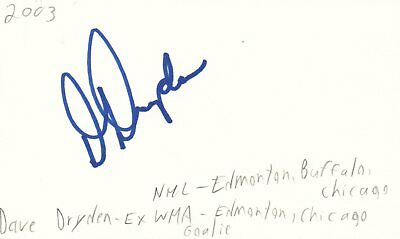 2003
D Dryden
NHL - Edmonton, Buffalo,
Chicago
Dave Dryden - Ex WMA - Edmonton, Chicago
Goalie